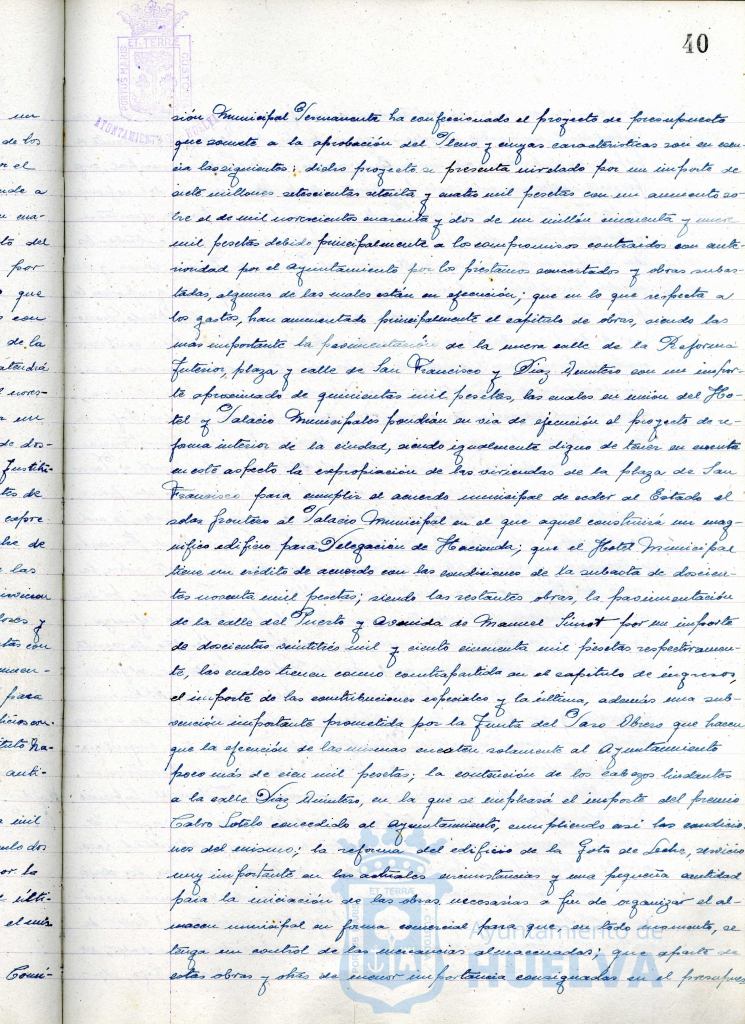 40
PORTUS MARIS ET TERRAE CUSTODIA
AYUNTAMIENTO HUELVA
sión Municipal Permanente ha confeccionado el proyecto de presupuesto
que somete a la aprobación del Pleno y cuyas características son en esen-
cia las siguientes: dicho proyecto se presenta nivelado por un importe de
siete millones setecientas setenta y cuatro mil pesetas con un aumento so-
bre el de mil novecientos cuarenta y dos de un millón cincuenta y nueve
mil pesetas debido principalmente a los compromisos contraidos con ante-
rioridad por el Ayuntamiento por los préstamos concertados y obras subas-
tadas, algunas de las cuales están en ejecución; que en lo que respecta a
los gastos, han aumentado principalmente el capítulo de obras, siendo las
más importante la pavimentación de la nueva calle de la Reforma
Interior, plaza y calle de San Francisco y Diaz Quintero con un impor-
te aproximado de quinientas mil pesetas, las cuales en unión del Ho-
tel y Palacio Municipales pondrían en via de ejecución el proyecto de re-
forma interior de la ciudad, siendo igualmente digno de tener en cuenta
en este aspecto la expropiación de las viviendas de la plaza de San
Francisco para cumplir el acuerdo municipal de ceder al Estado el
solar frontero al Palacio Municipal en el que aquel construirá un mag-
nífico edificio para Delegación de Hacienda; que el Hotel Municipal
tiene un crédito de acuerdo con las condiciones de la subasta de doscien-
tas noventa mil pesetas; siendo las restantes obras, la pavimentación
de la calle del Puerto y Avenida de Manuel Siurot por un importe
de doscientas veintitrés mil y ciento cincuenta mil pesetas respectivamen-
te, las cuales tienen como contrapartida en el capítulo de ingresos,
el importe de las contribuciones especiales y la última, además una sub-
vención importante prometida por la Junta del Paro Obrero que hacen
que la ejecución de las mismas cuesten solamente al Ayuntamiento
poco más de cien mil pesetas; la contención de los cabezos lindantes
a la calle Diaz Quintero, en la que se empleará el importe del premio
Calvo Sotelo concedido al Ayuntamiento, cumpliendo asi las condicio-
nes del mismo; la reforma del edificio de la Gota de Leche, servicio
muy importante en las actuales circunstancias y una pequeña cantidad
para la iniciación de las obras necesarias a fin de organizar el al-
macen municipal en forma comercial para que, en todo momento, se
tenga un control de las mercancias almacenadas; que aparte de
estas obras y otras de menor importancia consignadas en el presupues-
Ayuntamiento de
HUELVA